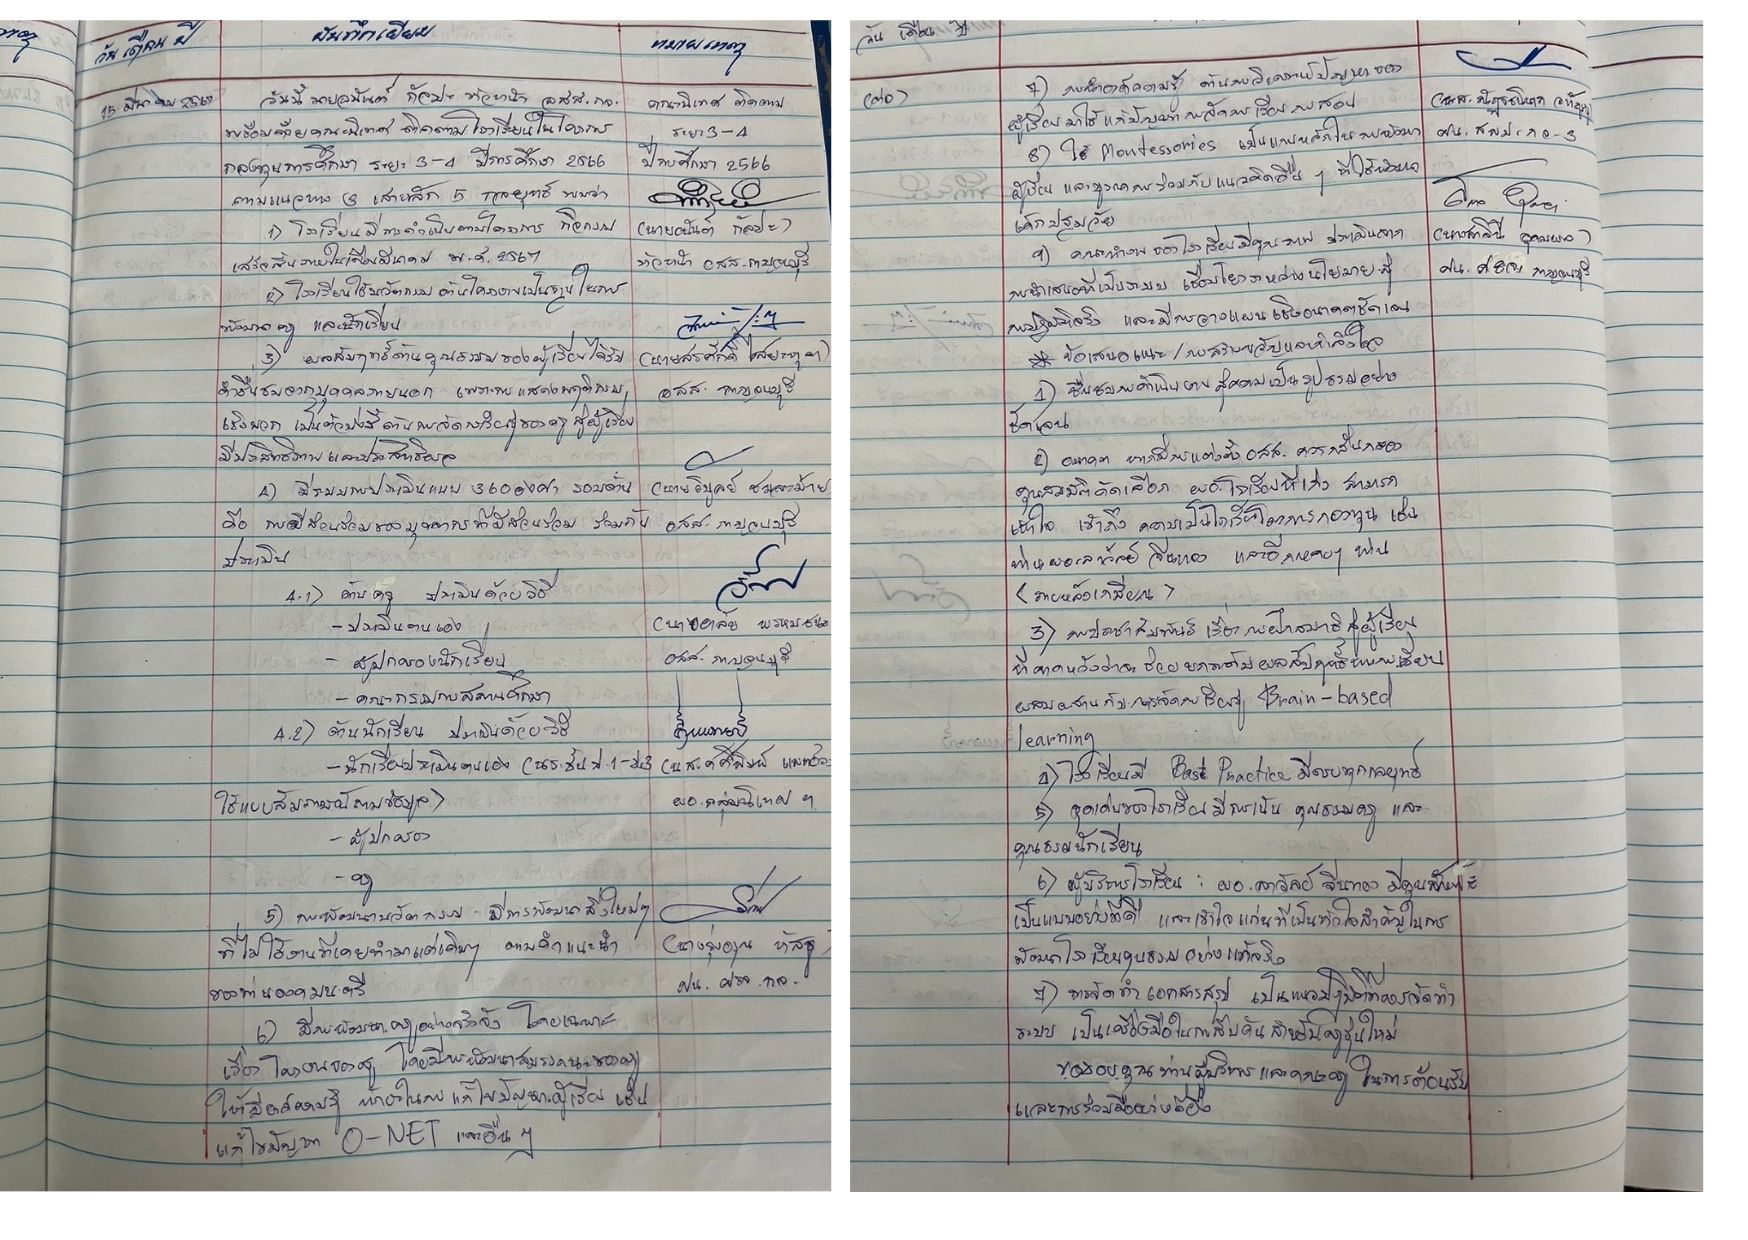 วัน เดือน ปี
บันทึกเยี่ยม
หมายเหตุ
15 มีนาคม 2567
วันนี้ นายอนันต์ กัลปะ หัวหน้า อสส.กจ.
พร้อมด้วยคณะนิเทศ ติดตามโรงเรียนในโครงการ
กองทุนการศึกษา ระยะ 3-4 ปีการศึกษา 2566
ตามแนวทาง 3 เสาหลัก 5 กลยุทธ์ พบว่า
1) โรงเรียนมีการดำเนินตามโครงการ กิจกรรม
เสร็จสิ้นภายในเดือนมีนาคม พ.ศ. 2567
2) โรงเรียนใช้นวัตกรรม ด้านโครงงานเป็นฐานในการ
พัฒนาครู และนักเรียน
3) ผลสัมฤทธิ์ด้านคุณธรรมของผู้เรียนได้รับ
คำชื่นชมจากบุคคลภายนอก เพราะการแสดงพฤติกรรม
เชิงบวก เป็นตัวบ่งชี้ด้านการจัดการเรียนรู้ของครู สู่ผู้เรียน
มีประสิทธิภาพและประสิทธิผล
4) มีระบบการประเมินแบบ 360 องศา รอบด้าน
คือ การมีส่วนร่วมของบุคลากรที่มีส่วนร่วม ร่วมกัน
ประเมิน
4.1) ด้านครู ประเมินด้วยวิธี
- ประเมินตนเอง
- ผู้ปกครองนักเรียน
- คณะกรรมการสถานศึกษา
4.2) ด้านนักเรียน ประเมินด้วยวิธี
- นักเรียนประเมินตนเอง (นร.ชั้น ป.1-ป.3
ใช้แบบสัมภาษณ์ถามข้อมูล)
- ผู้ปกครอง
- ครู
5) การพัฒนานวัตกรรม มีการพัฒนาสิ่งใหม่ๆ
ที่ไม่ใช้งานที่เคยทำมาแต่เดิมๆ ตามคำแนะนำ
ของท่านองคมนตรี
6) มีการพัฒนาครูอย่างจริงจัง โดยเฉพาะ
เรื่อง โครงงานของครู โดยมีการพัฒนาสมรรถนะของครู
ให้มีองค์ความรู้ ทักษะในการแก้ไขปัญหาผู้เรียน เช่น
แก้ไขปัญหา O-NET และอื่น ๆ
คณะนิเทศ ติดตาม
ระยะ 3-4
ปีการศึกษา 2566
(นายอนันต์ กัลปะ)
หัวหน้า อสส.กาญจนบุรี
อสส. กาญจนบุรี
อสส. กาญจนบุรี
อสส. กาญจนบุรี
ผอ.กลุ่มนิเทศ ฯ
ศน. ศธจ. กจ.
วัน เดือน ปี
(ต่อ)
7) การนำองค์ความรู้ ด้านการวิเคราะห์ปัญหาของ
ผู้เรียนมาใช้แก้ปัญหาการจัดการเรียนการสอน
8) ใช้ Montessories เป็นแกนหลักในการพัฒนา
ผู้เรียน และบูรณาการร่วมกับแนวคิดอื่น ๆ ที่ใช้พัฒนา
เด็กปฐมวัย
9) คณะทำงานของโรงเรียนมีคุณภาพ ประเมินจาก
การนำเสนอที่เป็นระบบ เชื่อมโยงระหว่างนโยบาย สู่
การปฏิบัติจริง และมีการวางแผนเชิงอนาคตชัดเจน
* ข้อเสนอแนะ / การสร้างขวัญและกำลังใจ
1) ชื่นชมการดำเนินงานสู่ความเป็นรูปธรรมอย่าง
ชัดเจน
2) อนาคต หากมีการแต่งตั้ง อสส. ควรกลั่นกรอง
คุณสมบัติคัดเลือก ผอ.โรงเรียนที่เก่ง สามารถ
เข้าใจ เข้าถึง ความเป็นโรงเรียนโครงการกองทุน เช่น
ท่านผอ.ลาวัลย์ จีนทอง และอีกหลายๆ ท่าน
(ภายหลังเกษียณ)
3) การประชาสัมพันธ์ เรื่อง การฝึกสมาธิ สู่ผู้เรียน
ที่คาดหวังว่าจะช่วยยกระดับผลสัมฤทธิ์ทางการเรียน
ผสมผสานกับการจัดการเรียนรู้ Brain-based
learning
4) โรงเรียนมี Best Practice มีครบทุกกลยุทธ์
5) จุดเด่นของโรงเรียน มีการเน้น คุณธรรมครู และ
คุณธรรมนักเรียน
6) ผู้บริหารโรงเรียน : ผอ.ลาวัลย์ จีนทอง มีคุณลักษณะ
เป็นแบบอย่างที่ดี และเข้าใจแก่นที่เป็นหัวใจสำคัญในการ
พัฒนาโรงเรียนคุณธรรม อย่างแท้จริง
7) การจัดทำเอกสารสรุป เป็นแนวปฏิบัติที่ควรจัดทำ
ระบบ เป็นเครื่องมือในการสืบค้น สำหรับครูรุ่นใหม่
ขอขอบคุณท่านผู้บริหารและคณะครู ในการต้อนรับ
และการร่วมมืออย่างดียิ่ง
ศน. สพป. กจ-3
ศน. ศธจ. กาญจนบุรี